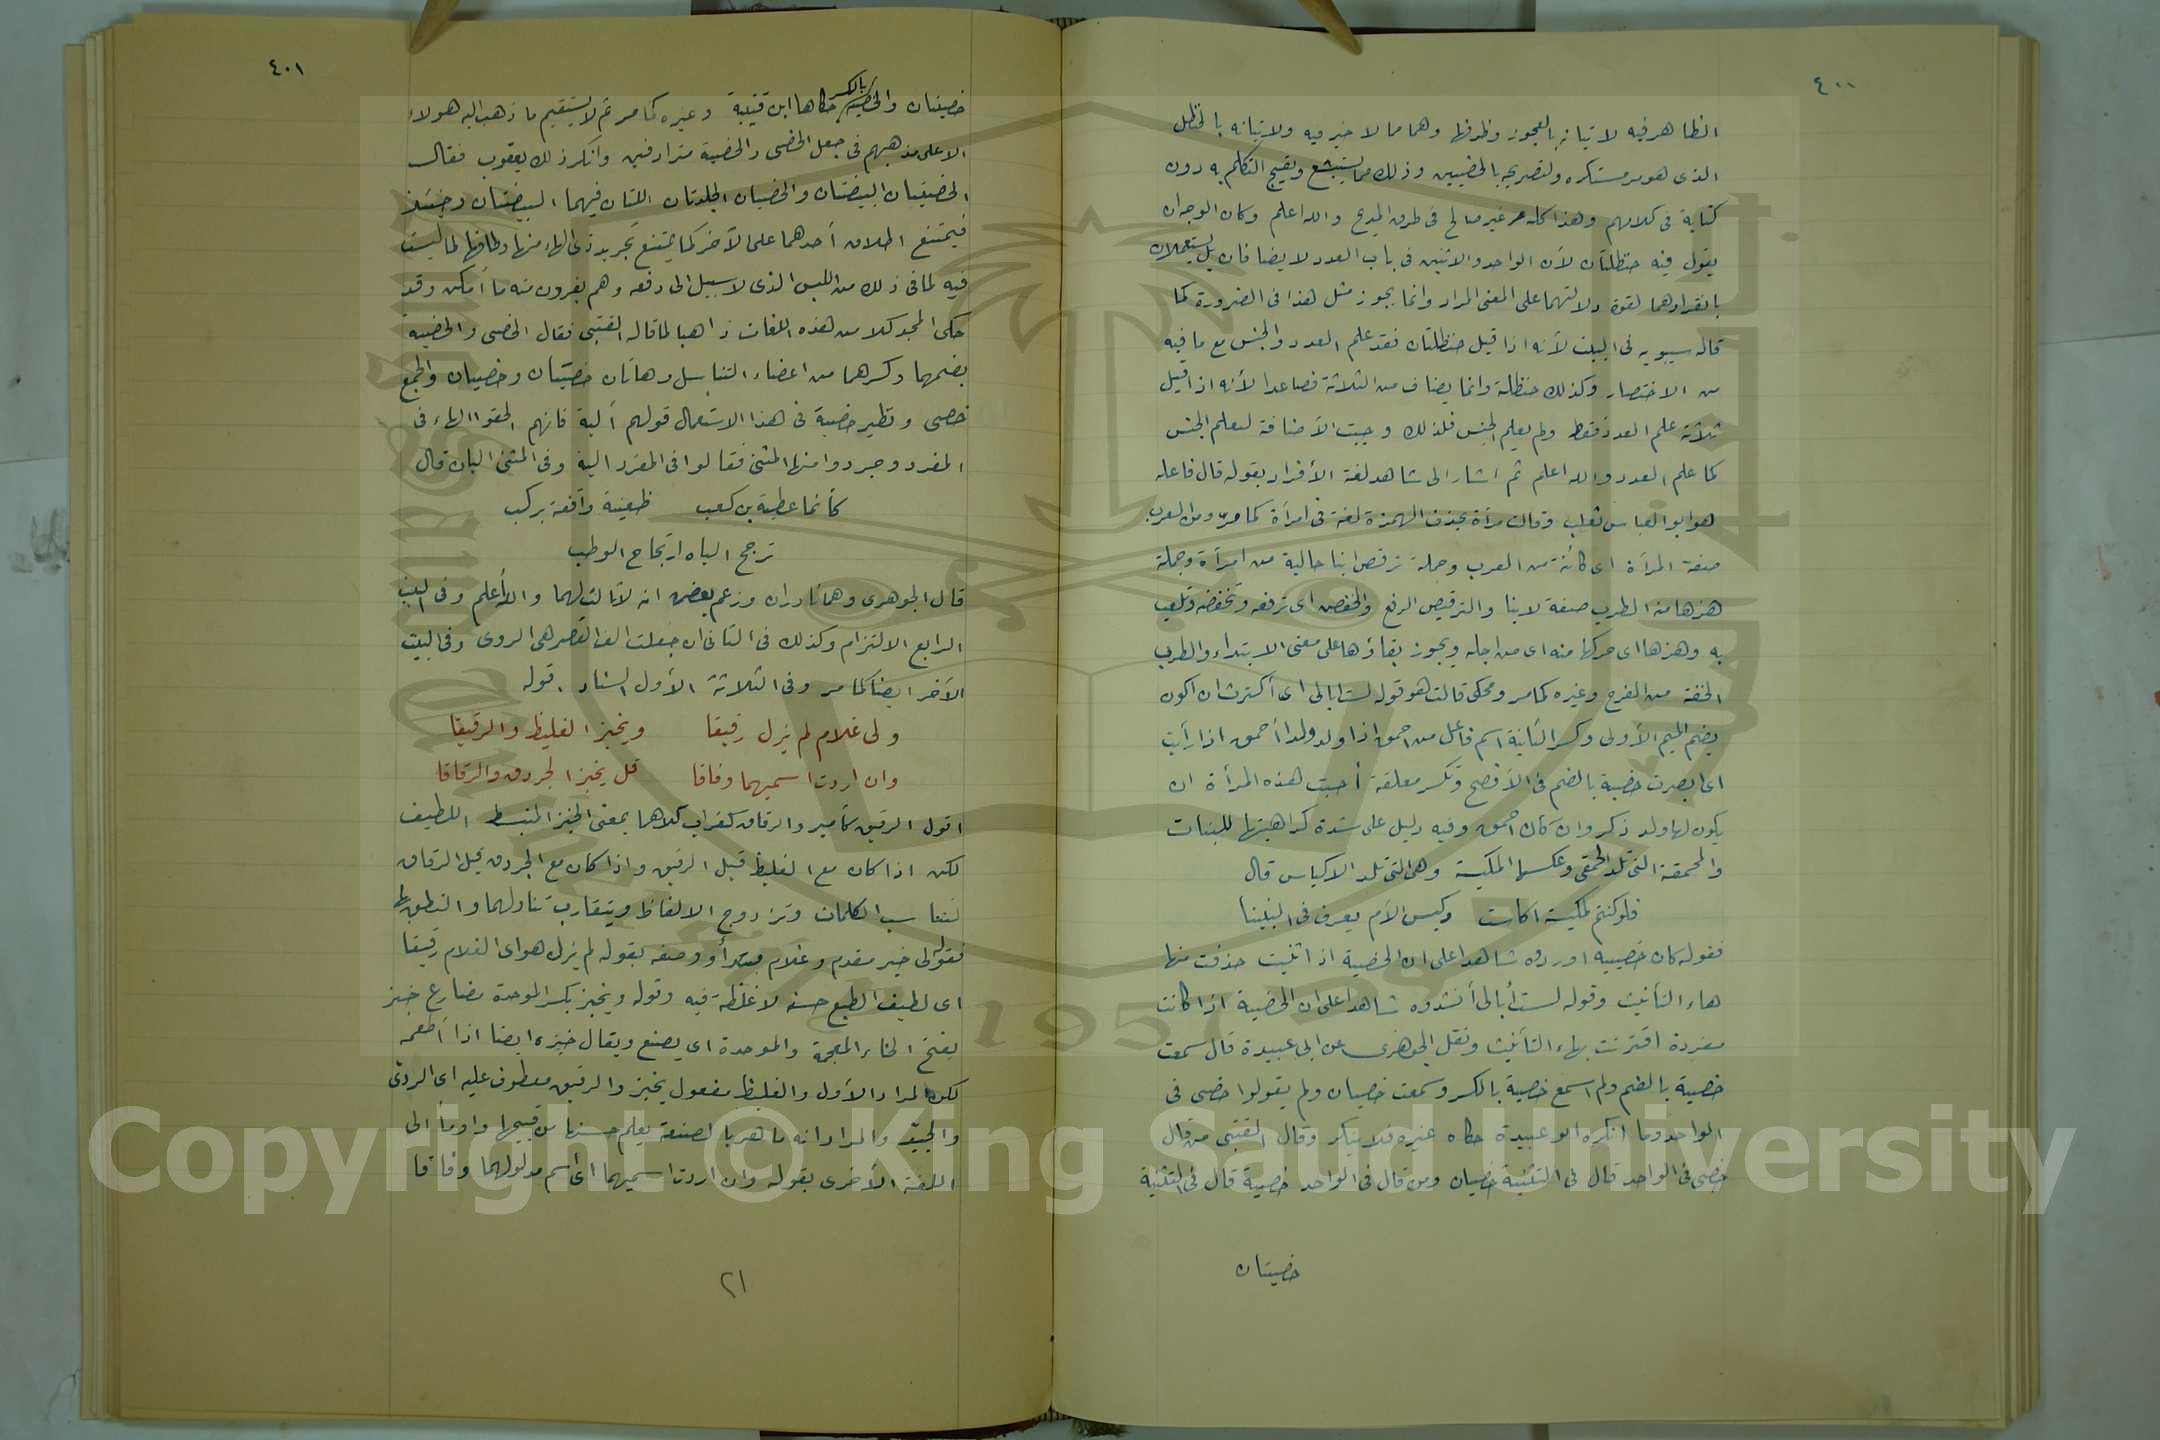 ٤٠٠
الظاهر فيه لاتيانه بالعجوز وظرفها وهما مما لا خير فيه ولاتيانه بالحنظل
الذى هو مر مستكره ولتصريحه بالخصيين وذلك مما يستبشع ويقبح التكلم به دون
كناية فى كلامهم وهذا كله غير صالح فى طرق المديح والله اعلم وكان الوجه ان
يقول فيه حنظلتان لأن الواحد والاثنين فى باب العدد لا يضافان بل يستعملان
بانفرادهما لقوة دلالتهما على المعنى المراد وانما يجوز مثل هذا فى الضرورة كما
قاله سيبويه فى البيت لأنه اذا قيل حنظلتان فقد علم العدد والجنس مع ما فيه
من الاختصار وكذلك حنظلة وانما يضاف من الثلاثة فصاعدا لأنه اذا قيل
ثلاثة علم العدد فقط ولم يعلم الجنس فلذلك وجبت الأضافة ليعلم الجنس
كما علم العدد والله اعلم ثم اشار الى شاهد لغة الأفراد بقوله قال فاعله
هو ابو العباس ثعلب وقالت مرأة بحذف الهمزة لغة فى امرأة كما مر ومن العرب
صفة المرأة اى كائنة من العرب وجملة ترقص ابنا حالية من امرأة وجملة
هزها منه الطرب صفة لابنا والترقيص الرفع والخفض اى ترفعه وتخفضه وتلعب
به وهزها اى حركها منه اى من اجله ويجوز بقاؤها على معنى الابتداء والطرب
الخفة من الفرح وغيره كما مر ومحكى قالت هو قوله لست ابالى اى أكترث ان اكون
بضم الميم الأولى وكسر الثانية اسم فاعل من احمق اذا ولد ولدا أحمق اذا رأيت
اى ابصرت خصية بالضم فى الأفصح وتكسر معلقة أحبت هذه المرأة ان
يكون لها ولد ذكر وان كان احمق وفيه دليل على شدة كراهيتها للبنات
والمحمقة التى تلد الحمقى وعكسها المكيسة وهى التى تلد الاكياس قال
فلو كنتم لمكيسة اكاست وكيس الأم يعرف فى البنينا
فقوله كان خصييه اوردوه شاهدا على ان الخصية اذا ثنيت حذفت منها
هاء التأنيث وقوله لست أبالى أنشدوه شاهدا على ان الخصية اذا كانت
مفردة اقترنت بهاء التأنيث ونقل الجوهرى عن ابى عبيدة قال سمعت
خصية بالضم ولم اسمع خصية بالكسر وسمعت خصيان ولم يقولوا خصى فى
الواحد وما انكره ابو عبيدة حكاه غيره فلا ينكر وقال القتبى من قال
خصى فى الواحد قال فى التثنية خصيان ومن قال فى الواحد خصية قال فى التثنية
خصيتان
٤٠١
خصيتان والخصية بالكسر حكاها ابن قتيبة وغيره كما مر ثم لا يستقيم ما ذهب اليه هولاء
الا على مذهبهم فى جعل الخصى والخصية مترادفين وانكر ذلك يعقوب فقال
الخصيتان البيضتان والخصيان الجلدتان اللتان فيهما البيضتان وحينئذ
فيمتنع اطلاق أحدهما على الآخر كما يمتنع تجريد ذى الهاء منها والحاقها لما ليست
فيه لما فى ذلك من اللبس الذى لا سبيل الى دفعه وهم يفرون منه ما أمكن وقد
حكى المجد كلا من هذه اللغات ذاهبا لما قاله القتبى فقال الخصى والخصية
بضمهما وكسرهما من اعضاء التناسل وهاتان خصيتان وخصيان والجمع
خصى ونظير خصية فى هذا الاستعمال قولهم ألية فانهم الحقوا الهاء فى
المفرد وجردوا منها المثنى فقالوا فى المفرد الية وفى المثنى اليان قال
كأنما عطية بن كعب ظعينة واقفة بركب
ترتج الياه ارتجاج الوطب
قال الجوهرى وهما نادران وزعم بعض انه لا ثالث لهما والله أعلم وفى البيت
الرابع الالتزام وكذلك فى الثانى ان جعلت الف القصر هى الروى وفى البيت
الآخر ايضا كما مر وفى الثلاثة الأول السناد قوله
ولى غلام لم يزل رقيقا ويخبز الغليظ والرقيقا
وان اردت اسميهما وفاقا قل يخبز الجردق والرقاقا
اقول الرقيق كأمير والرقاق كغراب كلاهما بمعنى الخبز المنبسط اللطيف
لكن اذا كان مع الغليظ قيل الرقيق واذا كان مع الجردق قيل الرقاق
لتتناسب الكلمات وتزدوج الالفاظ ويتقارب تناولهما والنطق بها
فقوله لى خبر مقدم وغلام مبتدأ ووصفه بقوله لم يزل هو اى الغلام رقيقا
اى لطيف الطبع حسنه لا غلظة فيه وقوله ويخبز بكسر الموحدة مضارع خبز
بفتح الخاء المعجمة والموحدة اى يصنع ويقال خبزه ايضا اذا أطعمه
لكن المراد الأول والغليظ مفعول يخبز والرقيق معطوف عليه اى الردئ
والجيد والمراد انه ماهر بالصنعة يعلم حسنها من قبيحها واومأ الى
اللغة الأخرى بقوله وان اردت اسميهما اى اسم مدلولهما وفاقا
٢١
Copyright © King Saud University
1957